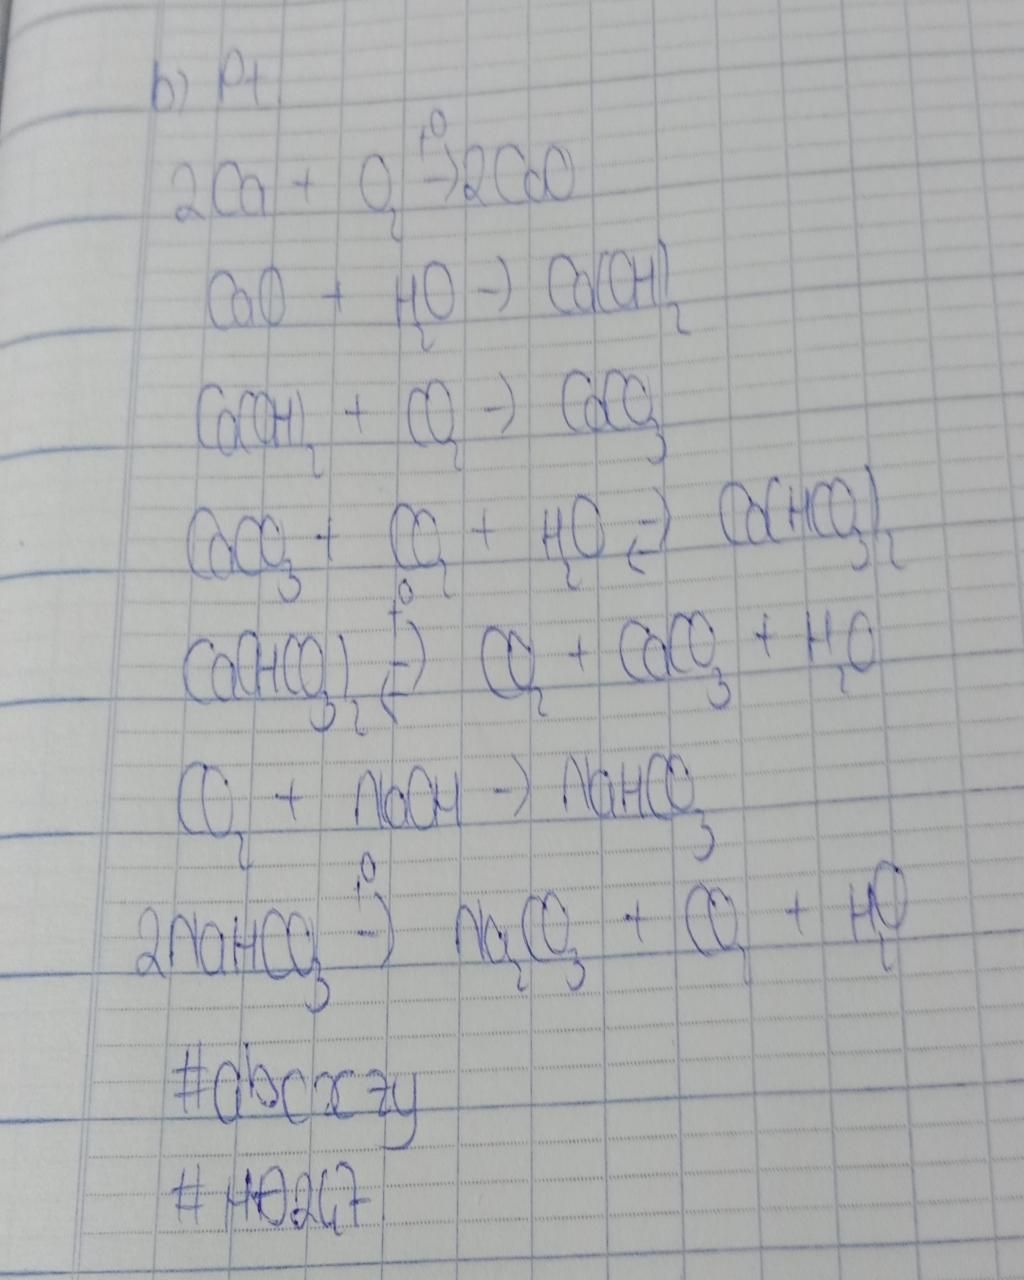 b) Pt
2Ca + O₂ →t⁰ 2CaO
CaO + H₂O → Ca(OH)₂
Ca(OH)₂ + CO₂ → CaCO₃
CaCO₃ + CO₂ + H₂O ⇄ Ca(HCO₃)₂
Ca(HCO₃)₂ ⇄t⁰ CO₂ + CaCO₃ + H₂O
CO₂ + NaOH → NaHCO₃
2NaHCO₃ →t⁰ Na₂CO₃ + CO₂ + H₂O
#abcxzy